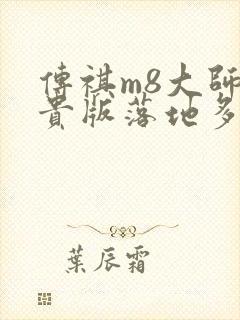 傳祺m8大師
貴版落地多
葉辰霜